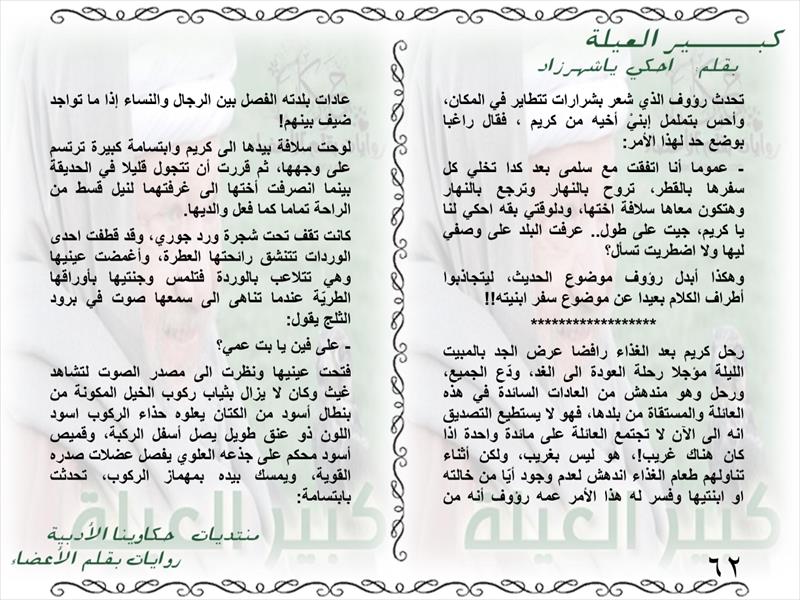 كبـــــير العيلة
بقلم احكي ياشهرزاد
تحدث رؤوف الذي شعر بشرارات تتطاير في المكان،
وأحس بتململ إبنيْ أخيه من كريم ، فقال راغبا
بوضع حد لهذا الأمر:
- عموما أنا اتفقت مع سلمى بعد كدا تخلي كل
سفرها بالقطر، تروح بالنهار وترجع بالنهار
وهتكون معاها سلافة اختها، ودلوقتي بقه احكي لنا
يا كريم، جيت على طول.. عرفت البلد على وصفي
ليها ولا اضطريت تسأل؟
وهكذا أبدل رؤوف موضوع الحديث، ليتجاذبوا
أطراف الكلام بعيدا عن موضوع سفر ابنيته!!
******************
رحل كريم بعد الغذاء رافضا عرض الجد بالمبيت
الليلة مؤجلا رحلة العودة الى الغد، ودّع الجميع،
ورحل وهو مندهش من العادات السائدة في هذه
العائلة والمستقاة من بلدها، فهو لا يستطيع التصديق
انه الى الآن لا تجتمع العائلة على مائدة واحدة اذا
كان هناك غريب!، هو ليس بغريب، ولكن أثناء
تناولهم طعام الغذاء اندهش لعدم وجود أيّا من خالته
او ابنتيها وفسر له هذا الأمر عمه رؤوف أنه من
عادات بلدته الفصل بين الرجال والنساء إذا ما تواجد
ضيف بينهم!
لوحت سلافة بيدها الى كريم وابتسامة كبيرة ترتسم
على وجهها، ثم قررت أن تتجول قليلا في الحديقة
بينما انصرفت أختها الى غرفتهما لنيل قسط من
الراحة تماما كما فعل والديها.
كانت تقف تحت شجرة ورد جوري، وقد قطفت احدى
الوردات تتنشق رائحتها العطرة، وأغمضت عينيها
وهي تتلاعب بالوردة فتلمس وجنتيها بأوراقها
الطريّة عندما تناهى الى سمعها صوت في برود
الثلج يقول:
- على فين يا بت عمي؟
فتحت عينيها ونظرت الى مصدر الصوت لتشاهد
غيث وكان لا يزال بثياب ركوب الخيل المكونة من
بنطال أسود من الكتان يعلوه حذاء الركوب اسود
اللون ذو عنق طويل يصل أسفل الركبة، وقميص
أسود محكم على جذعه العلوي يفصل عضلات صدره
القوية، ويمسك بيده بمهماز الركوب، تحدثت
بابتسامة:
كبير العيلة
كبير العيلة
منتديات حكاوينا الأدبية
روايات بقلم الأعضاء
٦٢